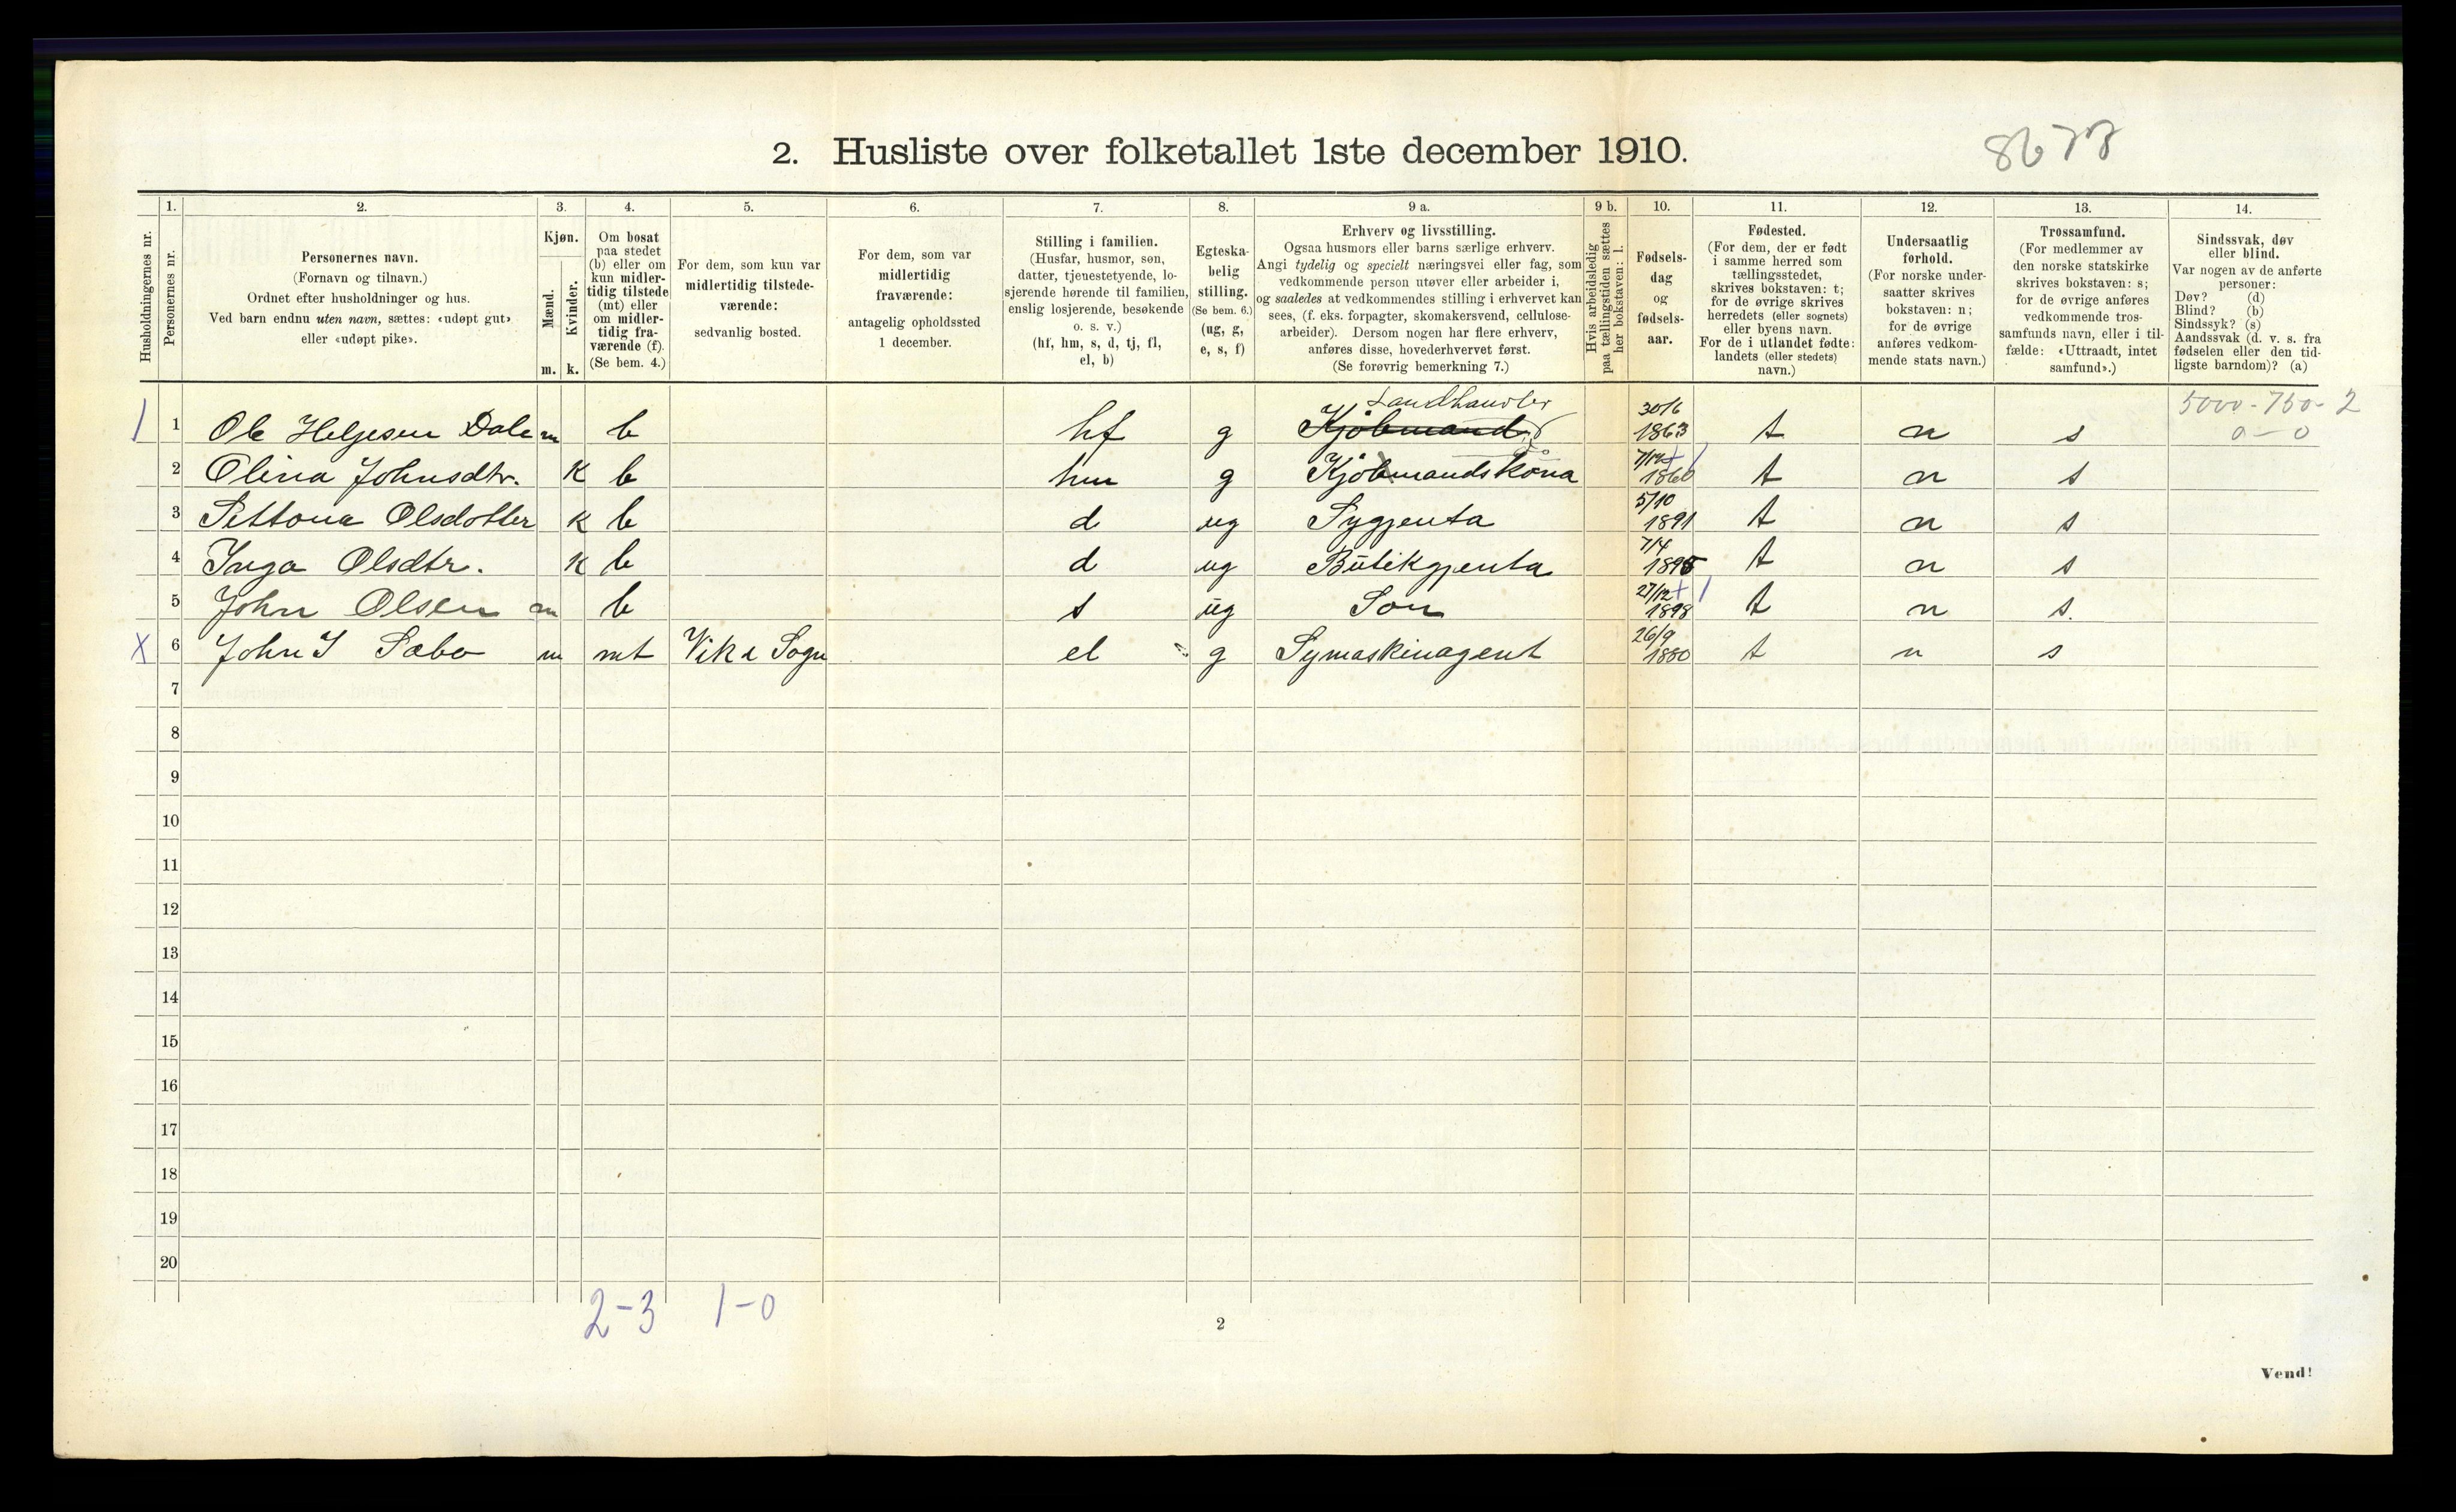 2. Husliste over folketallet 1ste december 1910.
8673
Husholdningernes nr.
1.
Personernes nr.
2.
Personernes navn.
(Fornavn og tilnavn.)
Ordnet efter husholdninger og hus.
Ved barn endnu uten navn, sættes: «udøpt gut»
eller «udøpt pike».
3.
Kjøn.
Mænd.
Kvinder.
m. k.
4.
Om bosat
paa stedet
(b) eller om
kun midler-
tidig tilstede
(mt) eller
om midler-
tidig fra-
værende (f).
(Se bem. 4.)
5.
For dem, som kun var
midlertidig tilstede-
værende:
sedvanlig bosted.
6.
For dem, som var
midlertidig
fraværende:
antagelig opholdssted
1 december.
7.
Stilling i familien.
(Husfar, husmor, søn,
datter, tjenestetyende, lo-
sjerende hørende til familien,
enslig losjerende, besøkende
o. s. v.)
(hf, hm, s, d, tj, fl,
el, b)
8.
Egteska-
belig
stilling.
(Se bem. 6.)
(ug, g,
e, s, f)
9 a.
Erhverv og livsstilling.
Ogsaa husmors eller barns særlige erhverv.
Angi tydelig og specielt næringsvei eller fag, som
vedkommende person utøver eller arbeider i,
og saaledes at vedkommendes stilling i erhvervet kan
sees, (f. eks. forpagter, skomakersvend, cellulose-
arbeider). Dersom nogen har flere erhverv,
anføres disse, hovederhvervet først.
(Se forøvrig bemerkning 7.)
9 b.
Hvis arbeidsledig
paa tællingstiden sættes
her bokstaven: l.
10.
Fødsels-
dag
og
fødsels-
aar.
11.
Fødested.
(For dem, der er født
i samme herred som
tællingsstedet,
skrives bokstaven: t;
for de øvrige skrives
herredets (eller sognets)
eller byens navn.
For de i utlandet fødte:
landets (eller stedets)
navn.)
12.
Undersaatlig
forhold.
(For norske under-
saatter skrives
bokstaven: n;
for de øvrige
anføres vedkom-
mende stats navn.)
13.
Trossamfund.
(For medlemmer av
den norske statskirke
skrives bokstaven: s;
for de øvrige anføres
vedkommende tros-
samfunds navn, eller i til-
fælde: «Uttraadt, intet
samfund».)
14.
Sindssvak, døv
eller blind.
Var nogen av de anførte
personer:
Døv? (d)
Blind? (b)
Sindssyk? (s)
Aandssvak (d. v. s. fra
fødselen eller den tid-
ligste barndom)? (a)
Landhandler 30/6 5000-750-2
1 1 Ole Helgesen Dale m b hf g Kjøbmand 1863 t n s 0-0
7/12
2 Olina Johnsdtr. k b hm g Kjøbmandskona 1860 t n s
5/10
3 Settona Olsdotter k b d ug Sygjenta 1891 t n s
7/4
4 Inga Olsdtr. k b d ug Butikgjenta 1895 t n s
27/12
5 John Olsen m b s ug Son 1898 t n s.
26/9
X 6 John I Sæbo m mt Vik i Sogn el g Symaskinagent 1880 t n s
7
8
9
10
11
12
13
14
15
16
17
18
19
20
2-3 1-0
2
Vend!